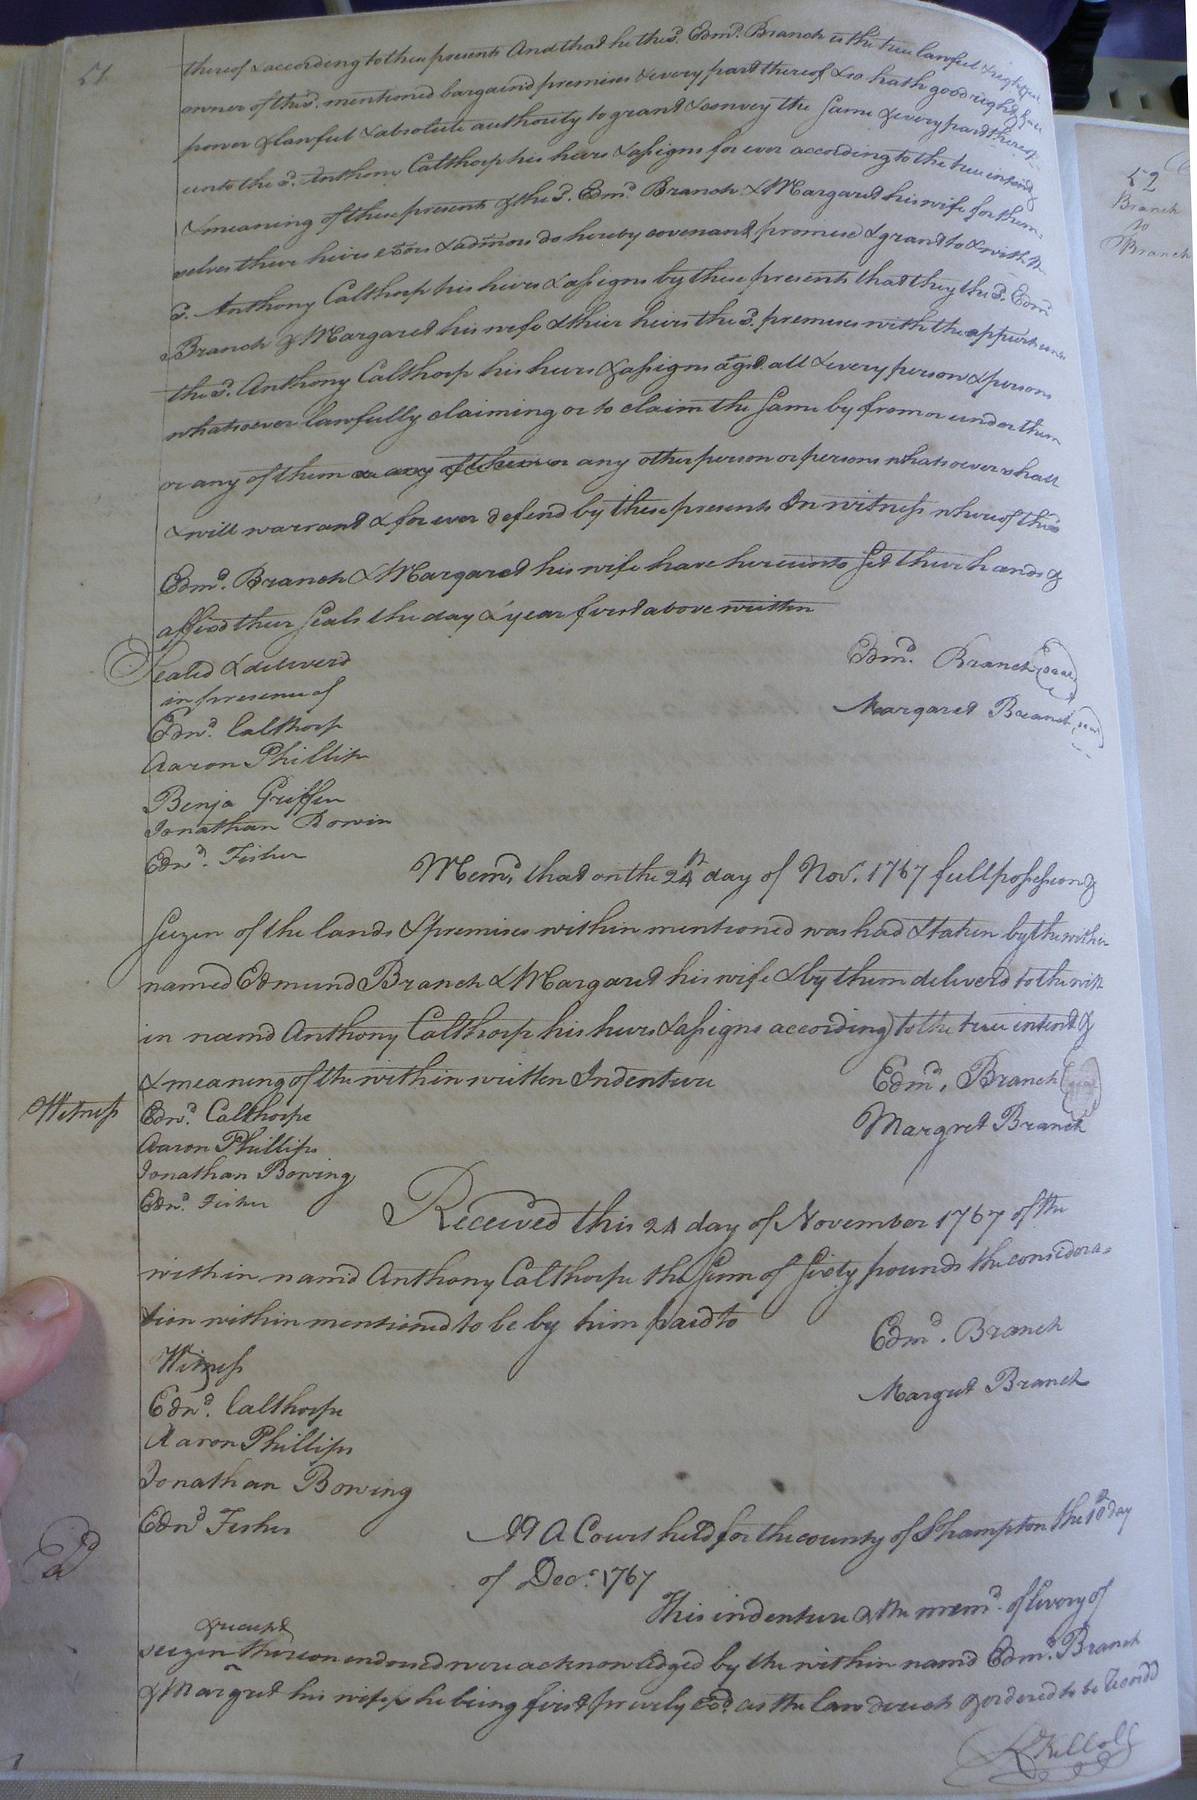 51
thereof & according to these presents And that he the sd. Edmd. Branch is the true lawful & rightful
owner of the sd. mentioned bargaind premises & every part thereof & so hath good right full
power & lawful & absolute authority to grant & convey the same & every part thereof
unto the sd. Anthony Calthorp his heirs & assigns for ever according to the true intent
& meaning of these presents & the sd. Edmd. Branch & Margaret his wife for them-
selves their heirs exors & admors do hereby covenant promise & grant to & with the
sd. Anthony Calthorp his heirs & assigns by these presents that they the sd. Edmd.
Branch & Margaret his wife & thier heirs the sd. premises with the appurtenances
the sd. Anthony Calthorp his heirs & assigns agst. all & every person & persons
whatsoever lawfully claiming or to claim the same by from or under them
or any of them or any of them or any other person or persons whatsoever shall
& will warrant & for ever defend by these presents In witness whereof the sd
Edmd. Branch & Margaret his wife have hereunto set their hands &
affixd their seals the day & year first above written
Sealed & deliverd
in presence of
Edwd. Calthorp
Aaron Phillips
Benja Griffen
Jonathan Bowin
Edwd. Fisher
Edmd. Branch (seal)
Margaret Branch (seal)
Memd. that on the 24th day of Novr. 1767 full possession &
seizen of the lands & premises within mentioned was had & taken by the within
named Edmund Branch & Margaret his wife & by them deliverd to the with
in namd Anthony Calthorp his heirs & assigns according to the true intent &
& meaning of the within written Indenture
Edmd. Branch (seal)
Margret Branch
Witness
Edwd. Calthorpe
Aaron Phillips
Jonathan Bowing
Edwd. Fisher
Received this 24 day of November 1767 of the
within namd Anthony Calthorpe the sum of sixty pounds the considera-
tion within mentioned to be by him paid to
Edmd. Branch
Margret Branch
Witness
Edwd. Calthorpe
Aaron Phillips
Jonathan Bowing
Edwd Fisher
At A Court held for the county of Shampton the 10th day
of Decr. 1767
This indenture & the memd. of livery of
& receipt
seizen thereon endorsed were acknowledged by the within namd Edmd. Branch
& Margret his wife she being first privily Exd. as the law directs & ordered to be recordd
52
Branch
to
Branch